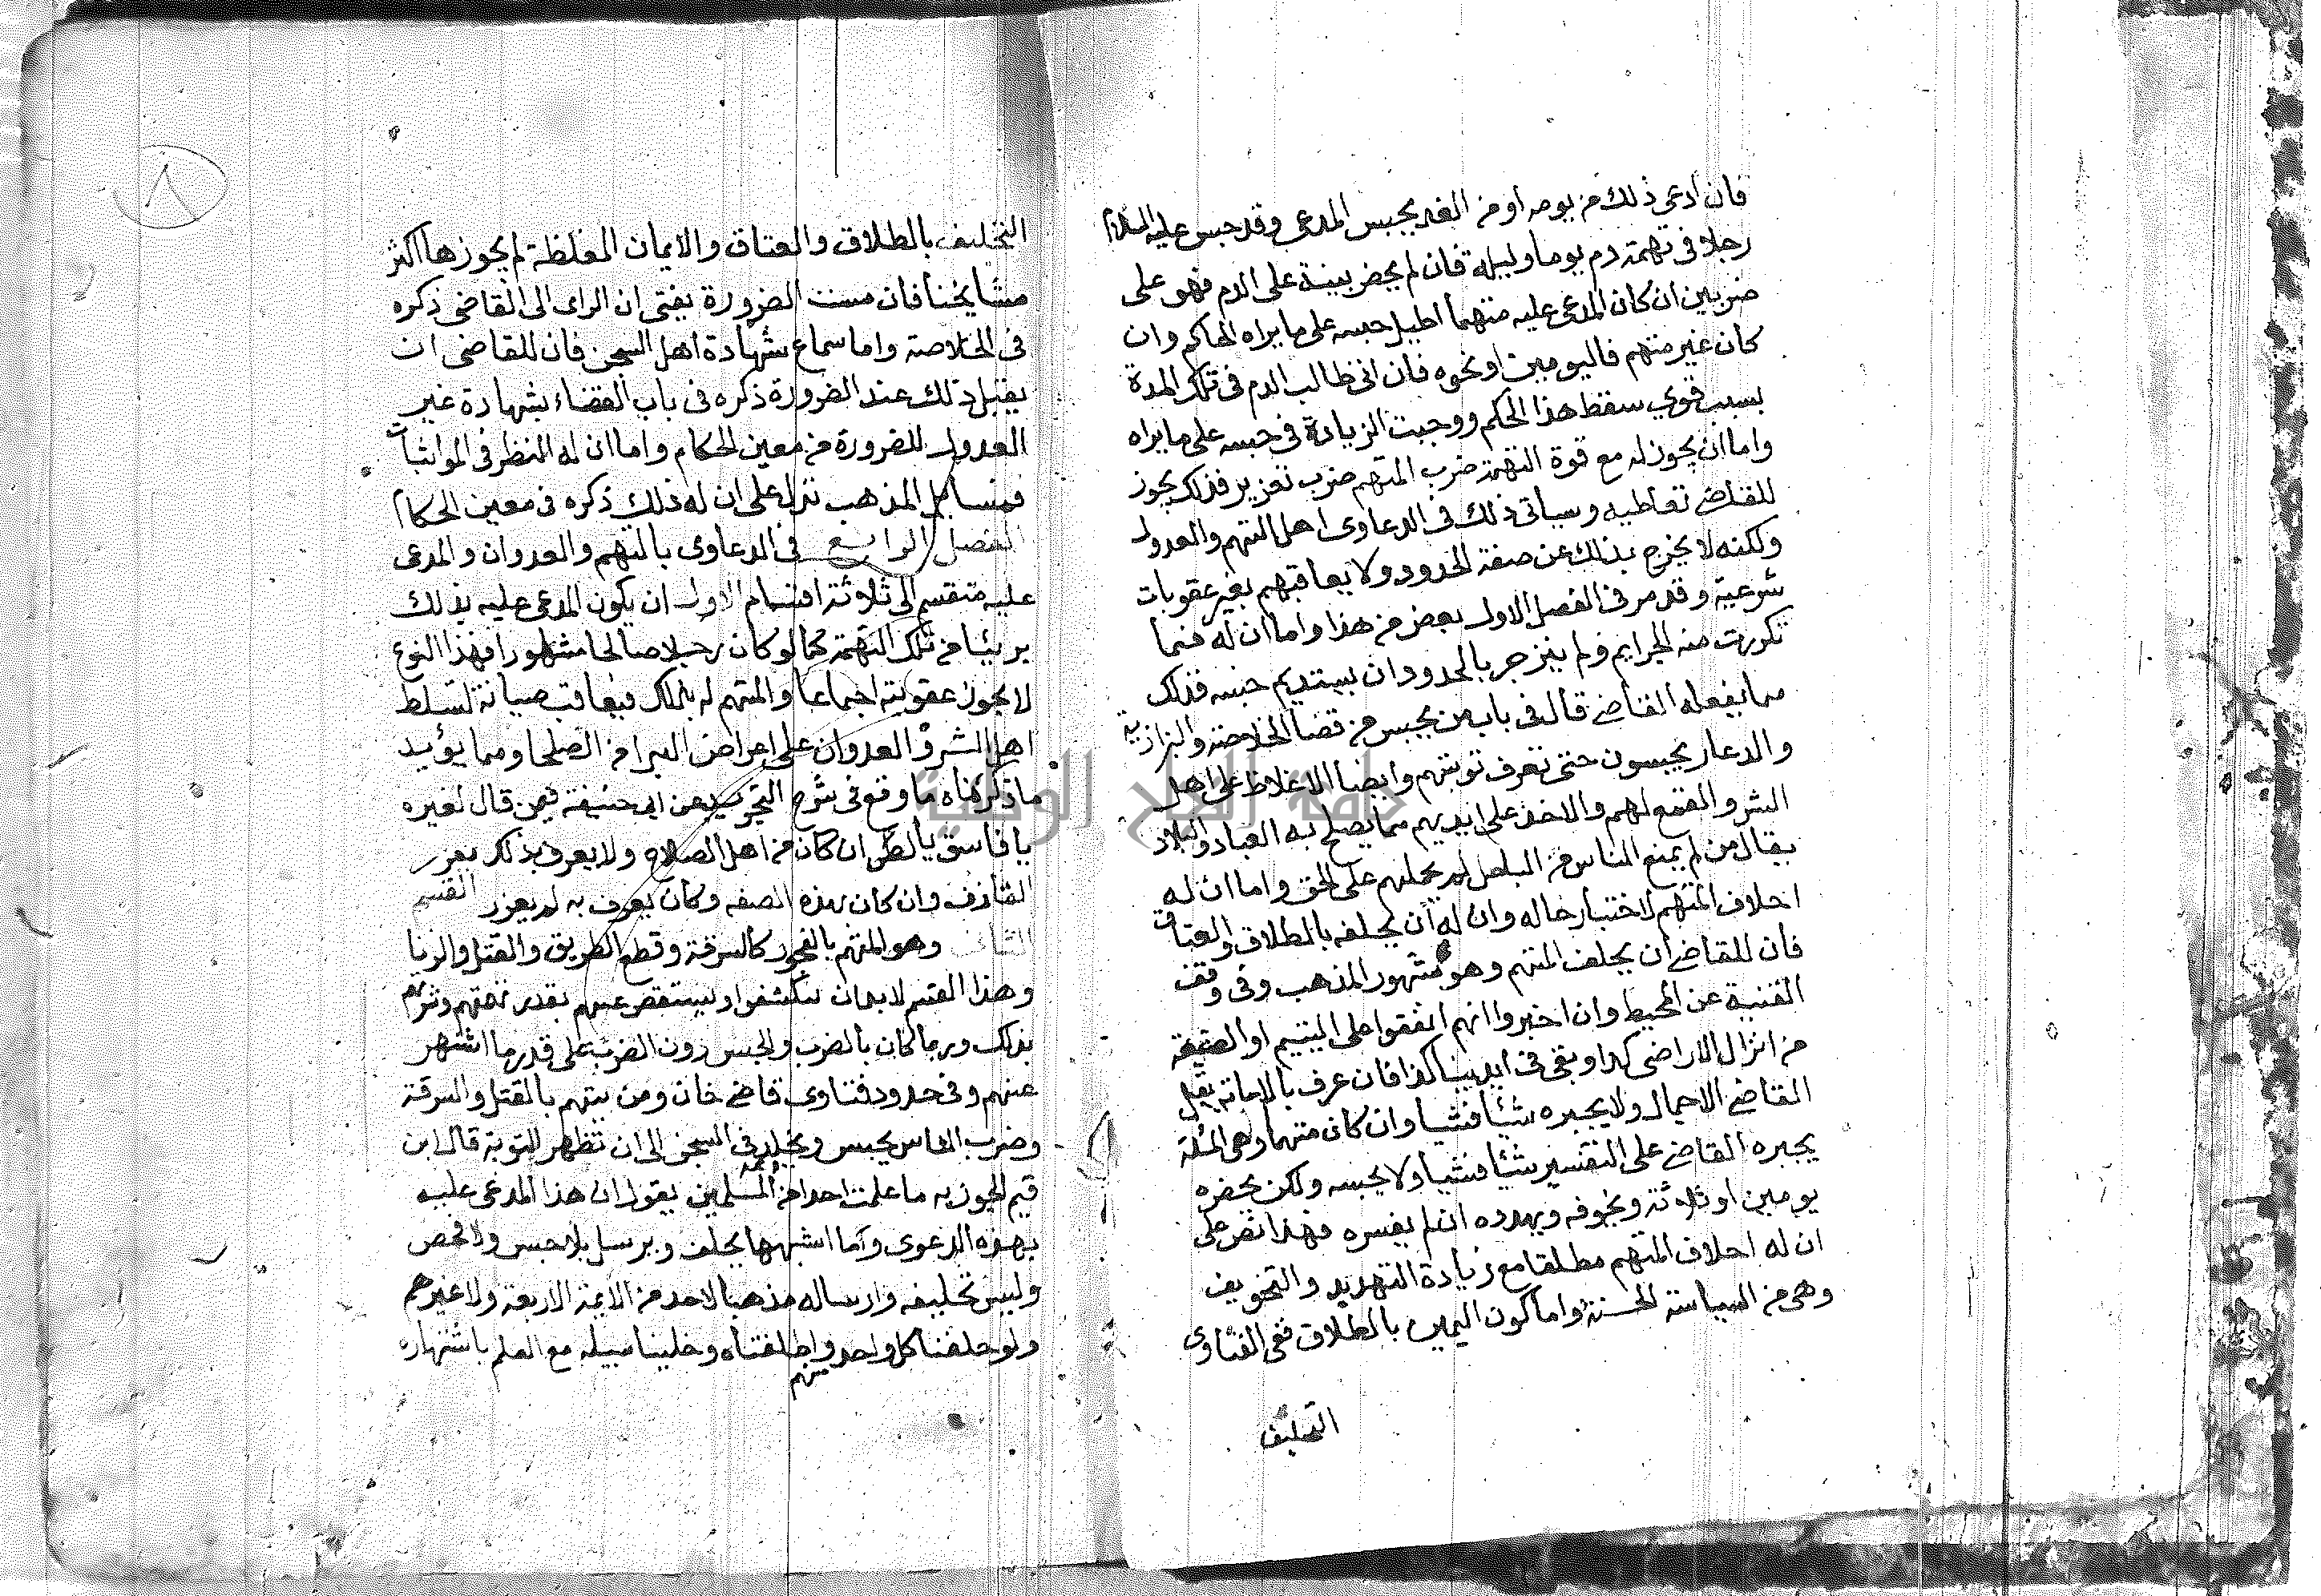 فان ادعى ذلك من يومه او من الغد يحبس المدعى وقد حبس عليه السلام
رجلا في تهمة دم يوما وليلة فان لم يحضر بينة على الدم فهو على
ضربين ان كان المدعى عليه متهما اطيل حبسه على ما يراه الحاكم وان
كان غير متهم فاليومين او نحوه فان اتى طالب الدم في تلك المدة
بسبب قوي سقط هذا الحكم ووجبت الزيادة في حبسه على ما يراه
واما ان يجوز له مع قوة التهمة ضرب المتهم ضرب تعزير فذلك يجوز
للقاضي تعاطيه وسياتي ذلك في الدعاوى اهل التهم والعدول
ولكنه لا يخرج بذلك عن صفة الحدود ولا يعاقبهم بغير عقوبات
شرعية وقد مر في الفصل الاول بعض من هذا واما ان له فيما
تكررت منه الجرايم ولم ينزجر بالحدود ان يستديم حبسه فذلك
مما يفعله القاضي قال في باب من يحبس من قضا الخلاصة والبزازية
والدعار يحبسون حتى تعرف توبتهم وايضا الاغلاظ على اهل
الشر والقمع لهم والاخذ على ايديهم مما يصلح به العباد والبلاد
يقال من لم يمنع الناس من الباطل لم يحملهم على الحق واما ان له
احلاف المتهم لاختبار حاله وان له ان يحلفه بالطلاق والعتاق
فان للقاضي ان يحلف المتهم وهو مشهور المذهب وفي وقف
القنية عن المحيط وان اخبروا انهم انفقوا على اليتيم او الضيعة
من انزال الاراضي كذا وبقي في ايدينا كذا فان عرف بالامانة يقبل
القاضي الاجمال ولا يجبره شيئا فشيا وان كان متهما وهي المسئلة
يجبره القاضي على التفسير شيئا فشيا ولا يحبسه ولكن يحضره
يومين او ثلاثة ويخوفه ويهدده ان لم يفسره فهذا نص على
ان له احلاف المتهم مطلقا مع زيادة التهديد والتخويف
وهي من السياسة الحسنة واما كون اليمين بالطلاق ففي الفتاوى
التحليف
٨
التحليف بالطلاق والعتاق والايمان المغلظة لم يجوزها اكثر
مشايخنا فان مست الضرورة يفتى ان الراى الى القاضي ذكره
في الخلاصة واما سماع شهادة اهل السجن فان للقاضي ان
يقبل ذلك عند الضرورة ذكره في باب القضاء بشهادة غير
العدول للضرورة من معين الحكام واما ان له النظر في المواثبات
فمسايل المذهب تدل على ان له ذلك ذكره في معين الحكام
الفصل الرابع في الدعاوى بالتهم والعدوان والمدعى
عليه منقسم الى ثلاثة اقسام الاول ان يكون المدعى عليه بذلك
بريئا من تلك التهمة كما لو كان رجلا صالحا مشهورا فهذا النوع
لا يجوز عقوبته اجماعا والمتهم له بذلك فيعاقب صيانة لتسلط
اهل الشر والعدوان على اعراض البرا من الصلحا ومما يؤيد
ما ذكرناه ما وقع في شرح التجريد عن ابي حنيفة فيمن قال لغيره
يا فاسق يا لص ان كان من اهل الصلاح ولا يعرف بذلك يعزر
القاذف وان كان بهذه الصفه وكان يعرف به لم يعزر القسم
الثاني وهو المتهم بالفجور كالسرقة وقطع الطريق والقتل والزنا
وهذا القسم لا بد ان يكشفوا ويستقصى عنهم بقدر تهمتهم وشهرتهم
بذلك وربما كان بالضرب والحبس دون الضرب على قدر ما اشتهر
عنهم وفي حدود فتاوى قاضي خان ومن يتهم بالقتل والسرقة
وضرب الناس يحبس ويخلد في السجن الى ان تظهر التوبة قال ابن
قيم الجوزيه ما علمت احدا من ائمة المسلمين يقول ان هذا المدعى عليه
بهذه الدعوى وما اشبهها يحلف ويرسل بلا حبس ولا فحص
وليس تحليفه وارساله مذهبا لاحد من الائمة الاربعة ولا غيرهم
ولو حلفنا كل واحد منهم واطلقناه وخلينا سبيله مع العلم باشتهاره